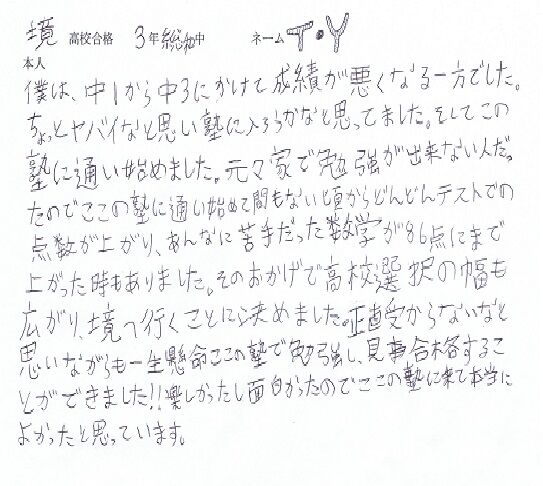 境 高校合格 3年総和中 ネームT・Y
本人
僕は、中1から中3にかけて成績が悪くなる一方でした。
ちょっとヤバイなと思い塾に入ろうかなと思ってました。そしてこの
塾に通い始めました。元々家で勉強が出来ない人だっ
たのでここの塾に通い始めて間もない頃からどんどんテストでの
点数が上がり、あんなに苦手だった数学が86点にまで
上がった時もありました。そのおかげで高校選択の幅も
広がり、境へ行くことに決めました。正直受からないなと
思いながらも一生懸命ここの塾で勉強し、見事合格するこ
とができました!!楽しかったし面白かったのでここの塾に来て本当に
よかったと思っています。